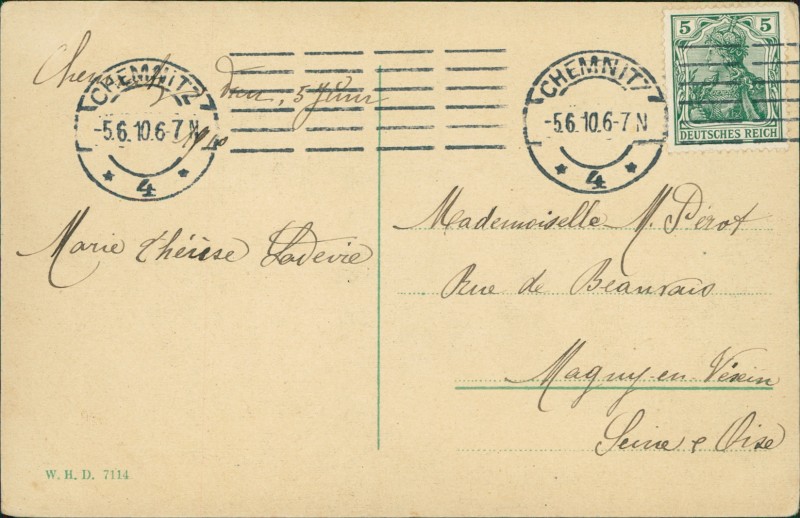 5 5
DEUTSCHES REICH
CHEMNITZ
-5.6.10.6-7 N
* 4 *
CHEMNITZ
-5.6.10.6-7 N
* 4 *
den, 5 Juin
1910
Marie Thérèse Ladevie
Mademoiselle M. Pérot
Rue de Beauvais
Magny-en-Vexin
Seine & Oise
W. H. D. 7114